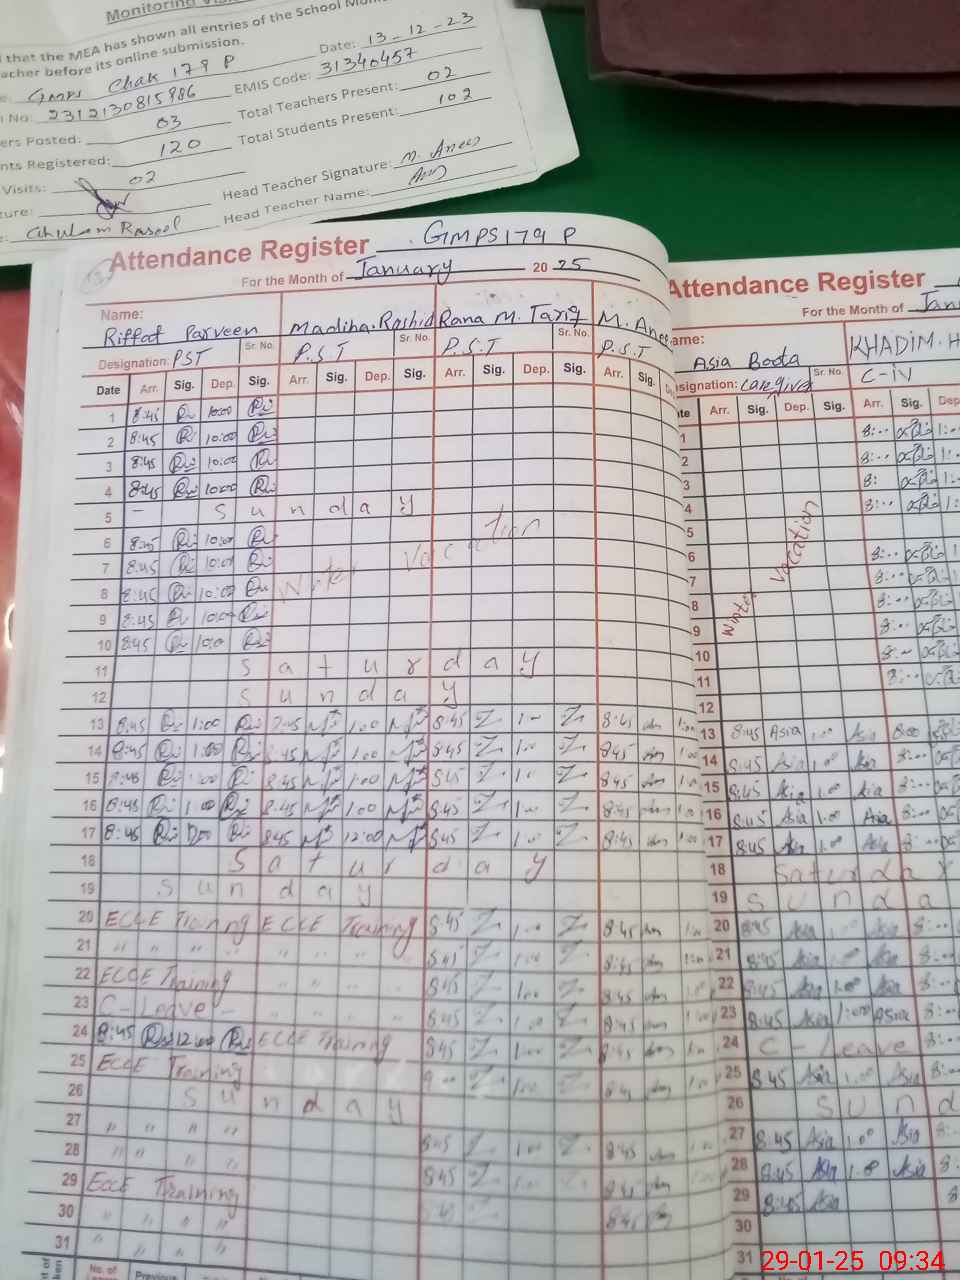 Monitoring
that the MEA has shown all entries of the School
acher before its online submission.
Date: 13-12-23
GMPS Chak 179 P
EMIS Code: 31340457
No: 2312130815986
Total Teachers Present: 02
ers Posted: 03
Total Students Present: 102
nts Registered: 120
Visits: 02
Head Teacher Signature: M. Anees
ture:
Head Teacher Name:
Ghulam Rasool
Attendance Register GMPS 179 P
For the Month of January 2025
Name: Riffat Parveen Madiha. Rashid Rana M. Tariq M. Anee
Designation: PST Sr. No. P.S.T Sr. No. P.S.T Sr. No. P.S.T
Date Arr. Sig. Dep. Sig. Arr. Sig. Dep. Sig. Arr. Sig. Dep. Sig. Arr. Sig.
1 8:45 10:00
2 8:45 10:00
3 8:45 10:00
4 8:45 10:00
5 - Sunday
6 8:45 10:00
7 8:45 10:00
8 8:45 10:00
9 8:45 10:00
10 8:45 10:0
Winter Vacation
11 Saturday
12 Sunday
13 8:45 1:00 1:00 8:45 1:00 8:45 1:00
14 8:45 1:00 8:45 1:00 8:45 1:00 8:45 1:00
15 8:45 1:00 8:45 1:00 8:45 1:00 8:45 1:00
16 8:45 1:00 8:45 1:00 8:45 1:00 8:45 1:00
17 8:45 8:45 12:00 8:45 1:00 8:45 1:00
18 Saturday
19 Sunday
20 ECCE Training ECCE Training 8:45 1:00 8:45 1:00
21 " " " " " " " " 8:45 1:00 8:45 1:00
22 ECCE Training " " " " 8:45 1:00 8:45 1:00
23 C-Leave - " " " " 8:45 1:00 8:45 1:00
24 8:45 12:00 ECCE Training 8:45 1:00 8:45 1:00
25 ECCE Training 9:00 1:00 8:45 1:00
26 Sunday
27 " " " " 8:45 1:00 8:45
28 " " " " 8:45 1:00 8:45
29 ECCE Training 8:45 8:45
30 " " " "
31 " " " "
No. of
Previous
Attendance Register
For the Month of Jan
ame: Asia Boota KHADIM. H
esignation: Caregiver Sr. No. C-iV
te Arr. Sig. Dep. Sig. Arr. Sig. Dep
1 8:--
2 8:--
3 8:
4 8:--
5
6 8:--
7 8:--
8 8:--
9 8:--
10 8:--
11 8:--
12
Winter Vacation
13 8:45 Asia 1:00 Asia 8:00
14 8:45 Asia 1:00 Asia 8:--
15 8:45 Asia 1:00 Asia 8:--
16 8:45 Asia 1:00 Asia 8:--
17 8:45 Asia 1:00 Asia 8:--
18 Saturday
19 Sunda
20 8:45 Asia 1:00 Asia 8:--
21 8:45 Asia 1:00 Asia 8:--
22 8:45 Asia 1:00 Asia 8:--
23 8:45 Asia 1:00 Asia 8:--
24 C-Leave 8:--
25 8:45 Asia 1:00 Asia 8:--
26 Sund
27 8:45 Asia 1:00 Asia 8:
28 8:45 Asia 1:00 Asia 8:
29 8:45 Asia 8
30
31
29-01-25 09:34